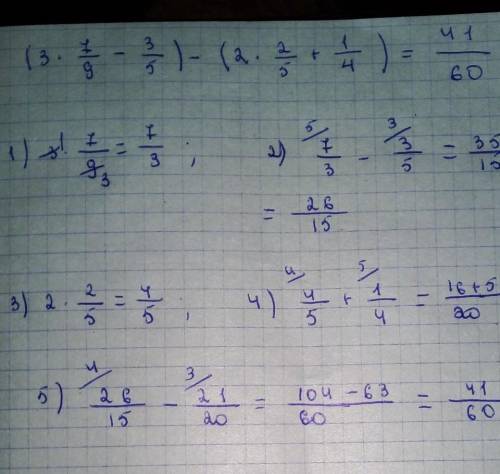 (3 · 7/9 − 3/5) − (2 · 2/5 + 1/4) = 41/60
1) 3¹ · 7/9₃ = 7/3 ; 2) ⁵⁄ 7/3 − ³⁄ 3/5 = 35/15
= 26/15
3) 2 · 2/5 = 4/5 ; 4) ⁴⁄ 4/5 + ⁵⁄ 1/4 = 16+5/20
5) ⁴⁄ 26/15 − ³⁄ 21/20 = 104−63/60 = 41/60